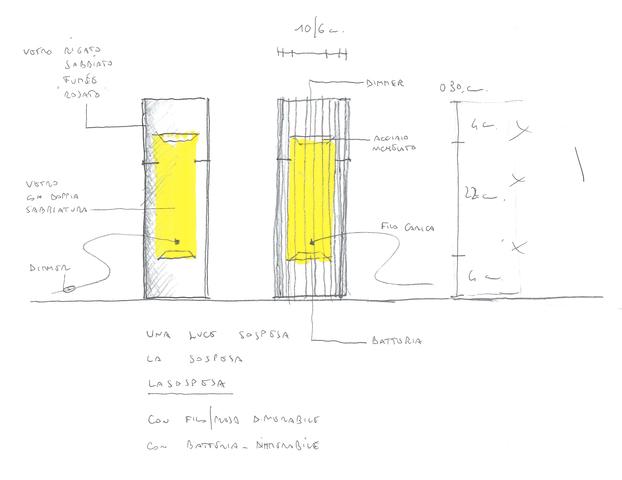 10/6 c.
VETRO RIGATO
SABBIATO
FUMÉE
ROSATO
DIMMER
030.c.
4 c.
ACCIAIO
VETRO
CON DOPPIA
SABBIATURA
22 c.
FILO CARICA
DIMMER
4 c.
UNA LUCE SOSPESA
BATTERIA
LA SOSPESA
LASOSPESA
CON FILO/PRESA DIMERABILE
CON BATTERIA - DIMMERABILE